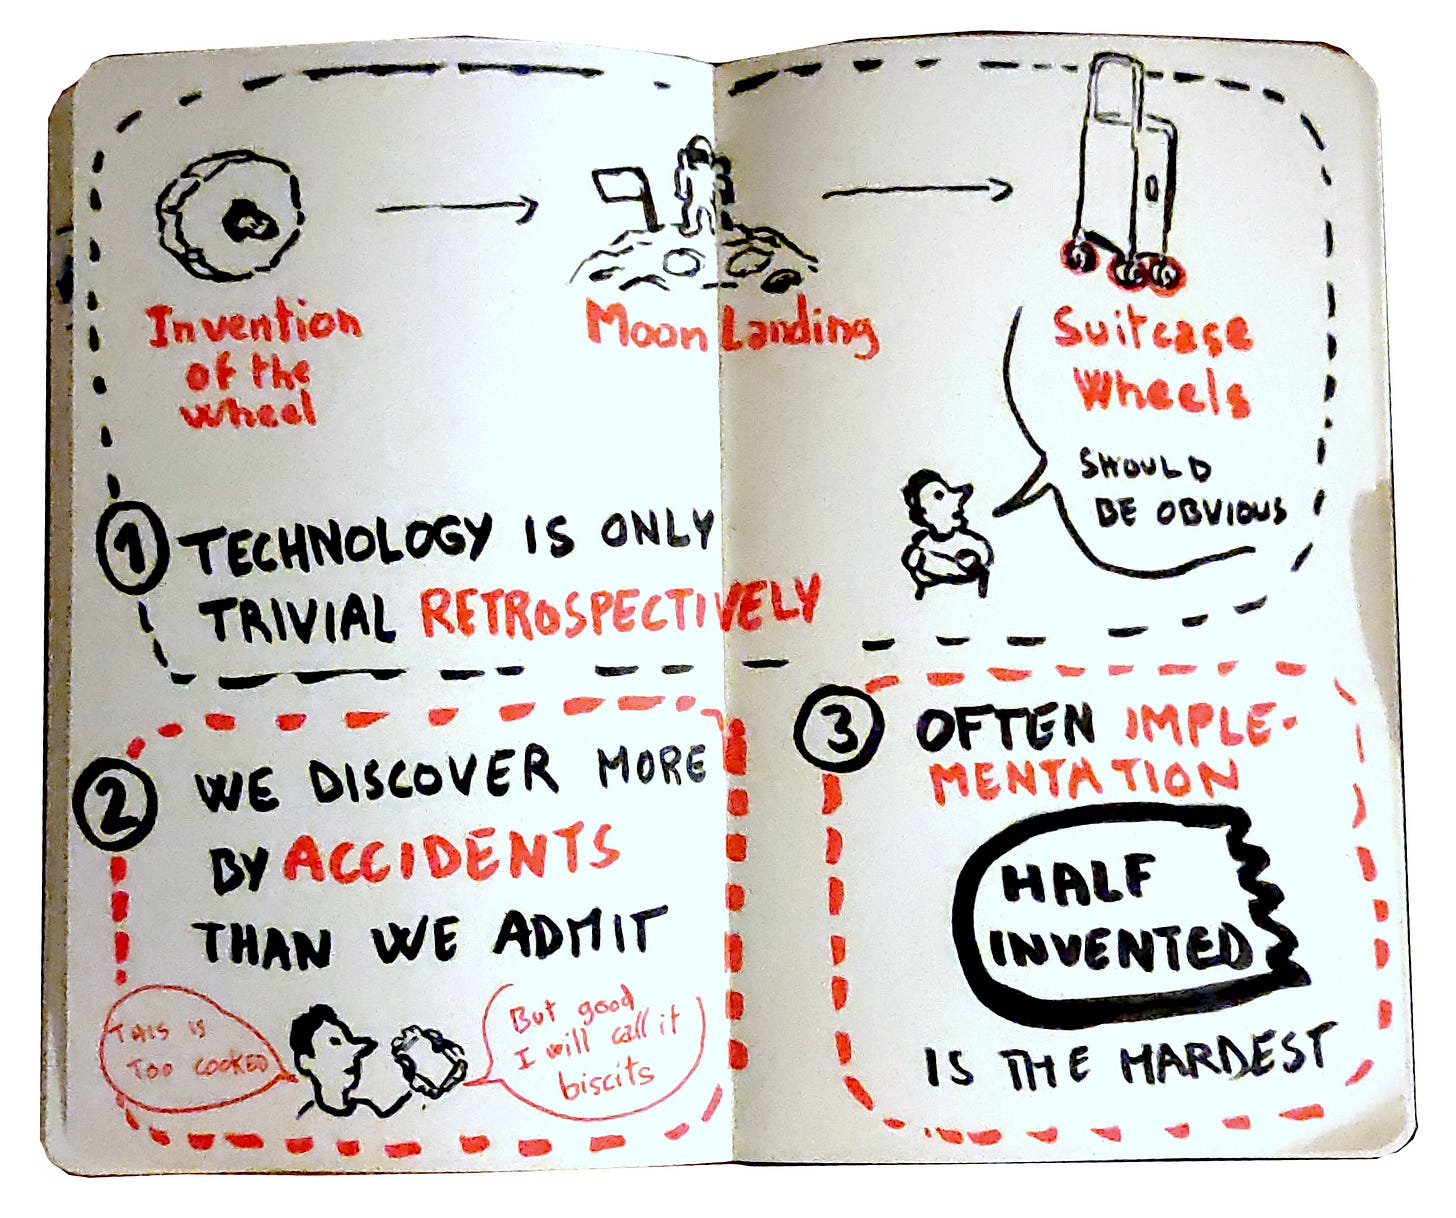 Invention
of the
wheel
Moon Landing
Suitcase
Wheels
SHOULD
BE OBVIOUS
1 TECHNOLOGY IS ONLY
TRIVIAL RETROSPECTIVELY
2 WE DISCOVER MORE
BY ACCIDENTS
THAN WE ADMIT
THIS IS
TOO COOKED
But good
I will call it
biscits
3 OFTEN IMPLE-
MENTATION
HALF
INVENTED
IS THE HARDEST